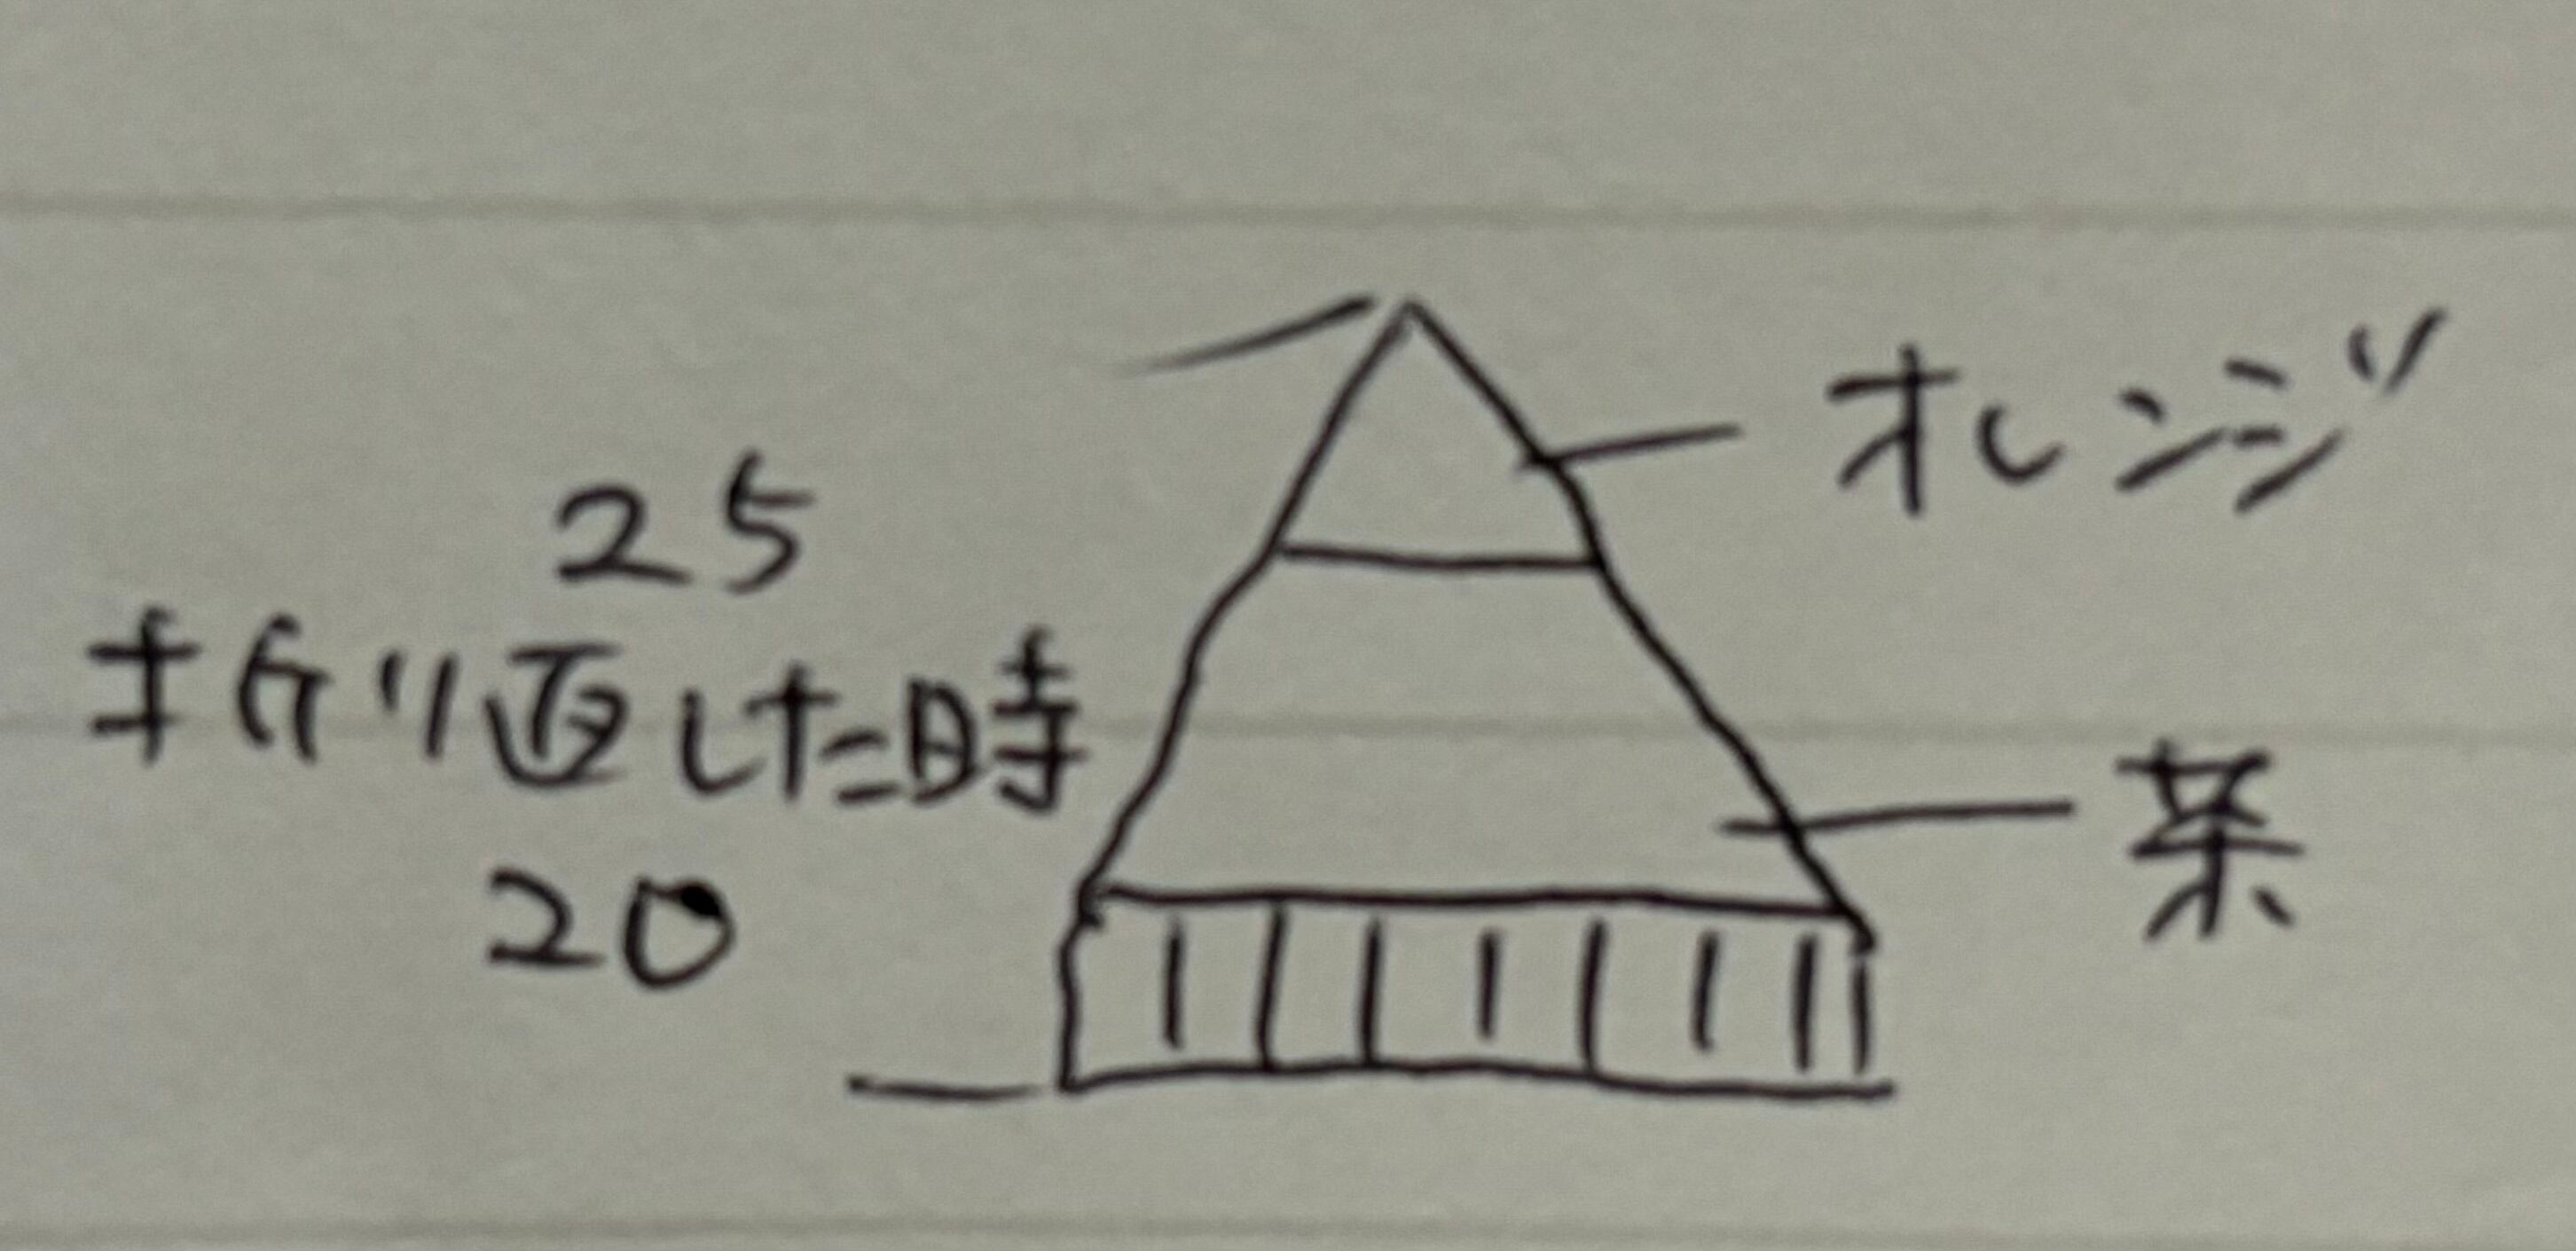 オレンジ
25
折り返した時
茶
20